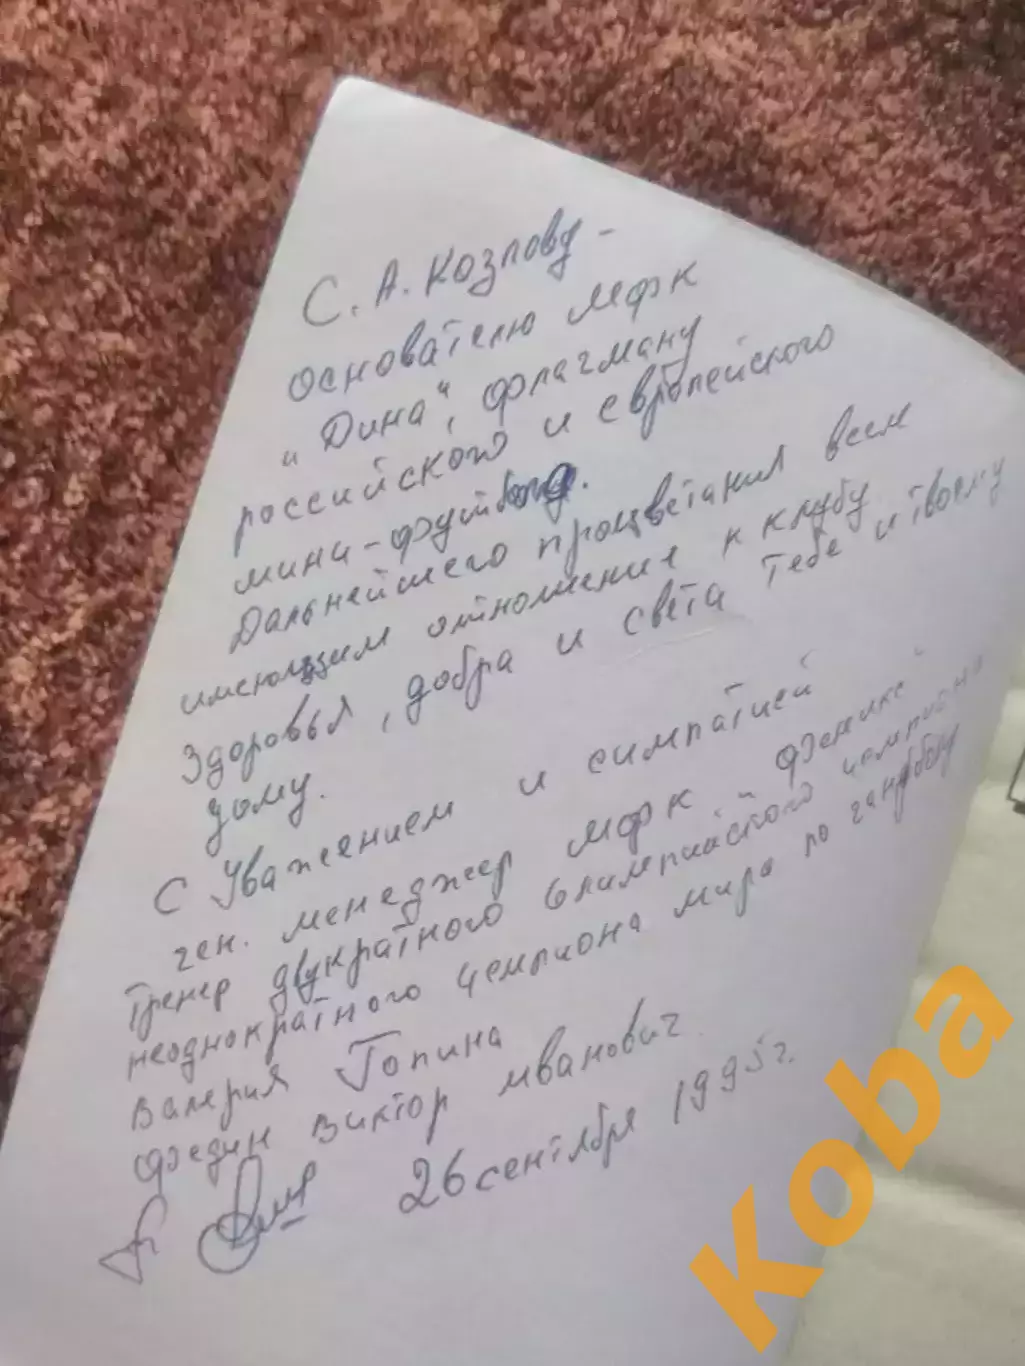 С. А. Козлову -
основателю МФК
"Дина", флагману
российского и европейского
мини-футбола.
Дальнейшего процветания всем
имеющим отношение к клубу
Здоровья, добра и света тебе и твоему
дому.
С Уважением и симпатией
ген. менеджер МФК Феникс
Тренер двукратного Олимпийского чемпиона
неоднократного чемпиона мира по гандболу
Валерия Гопина
Федин Виктор Иванович
26 сентября 1995 г.
Koba